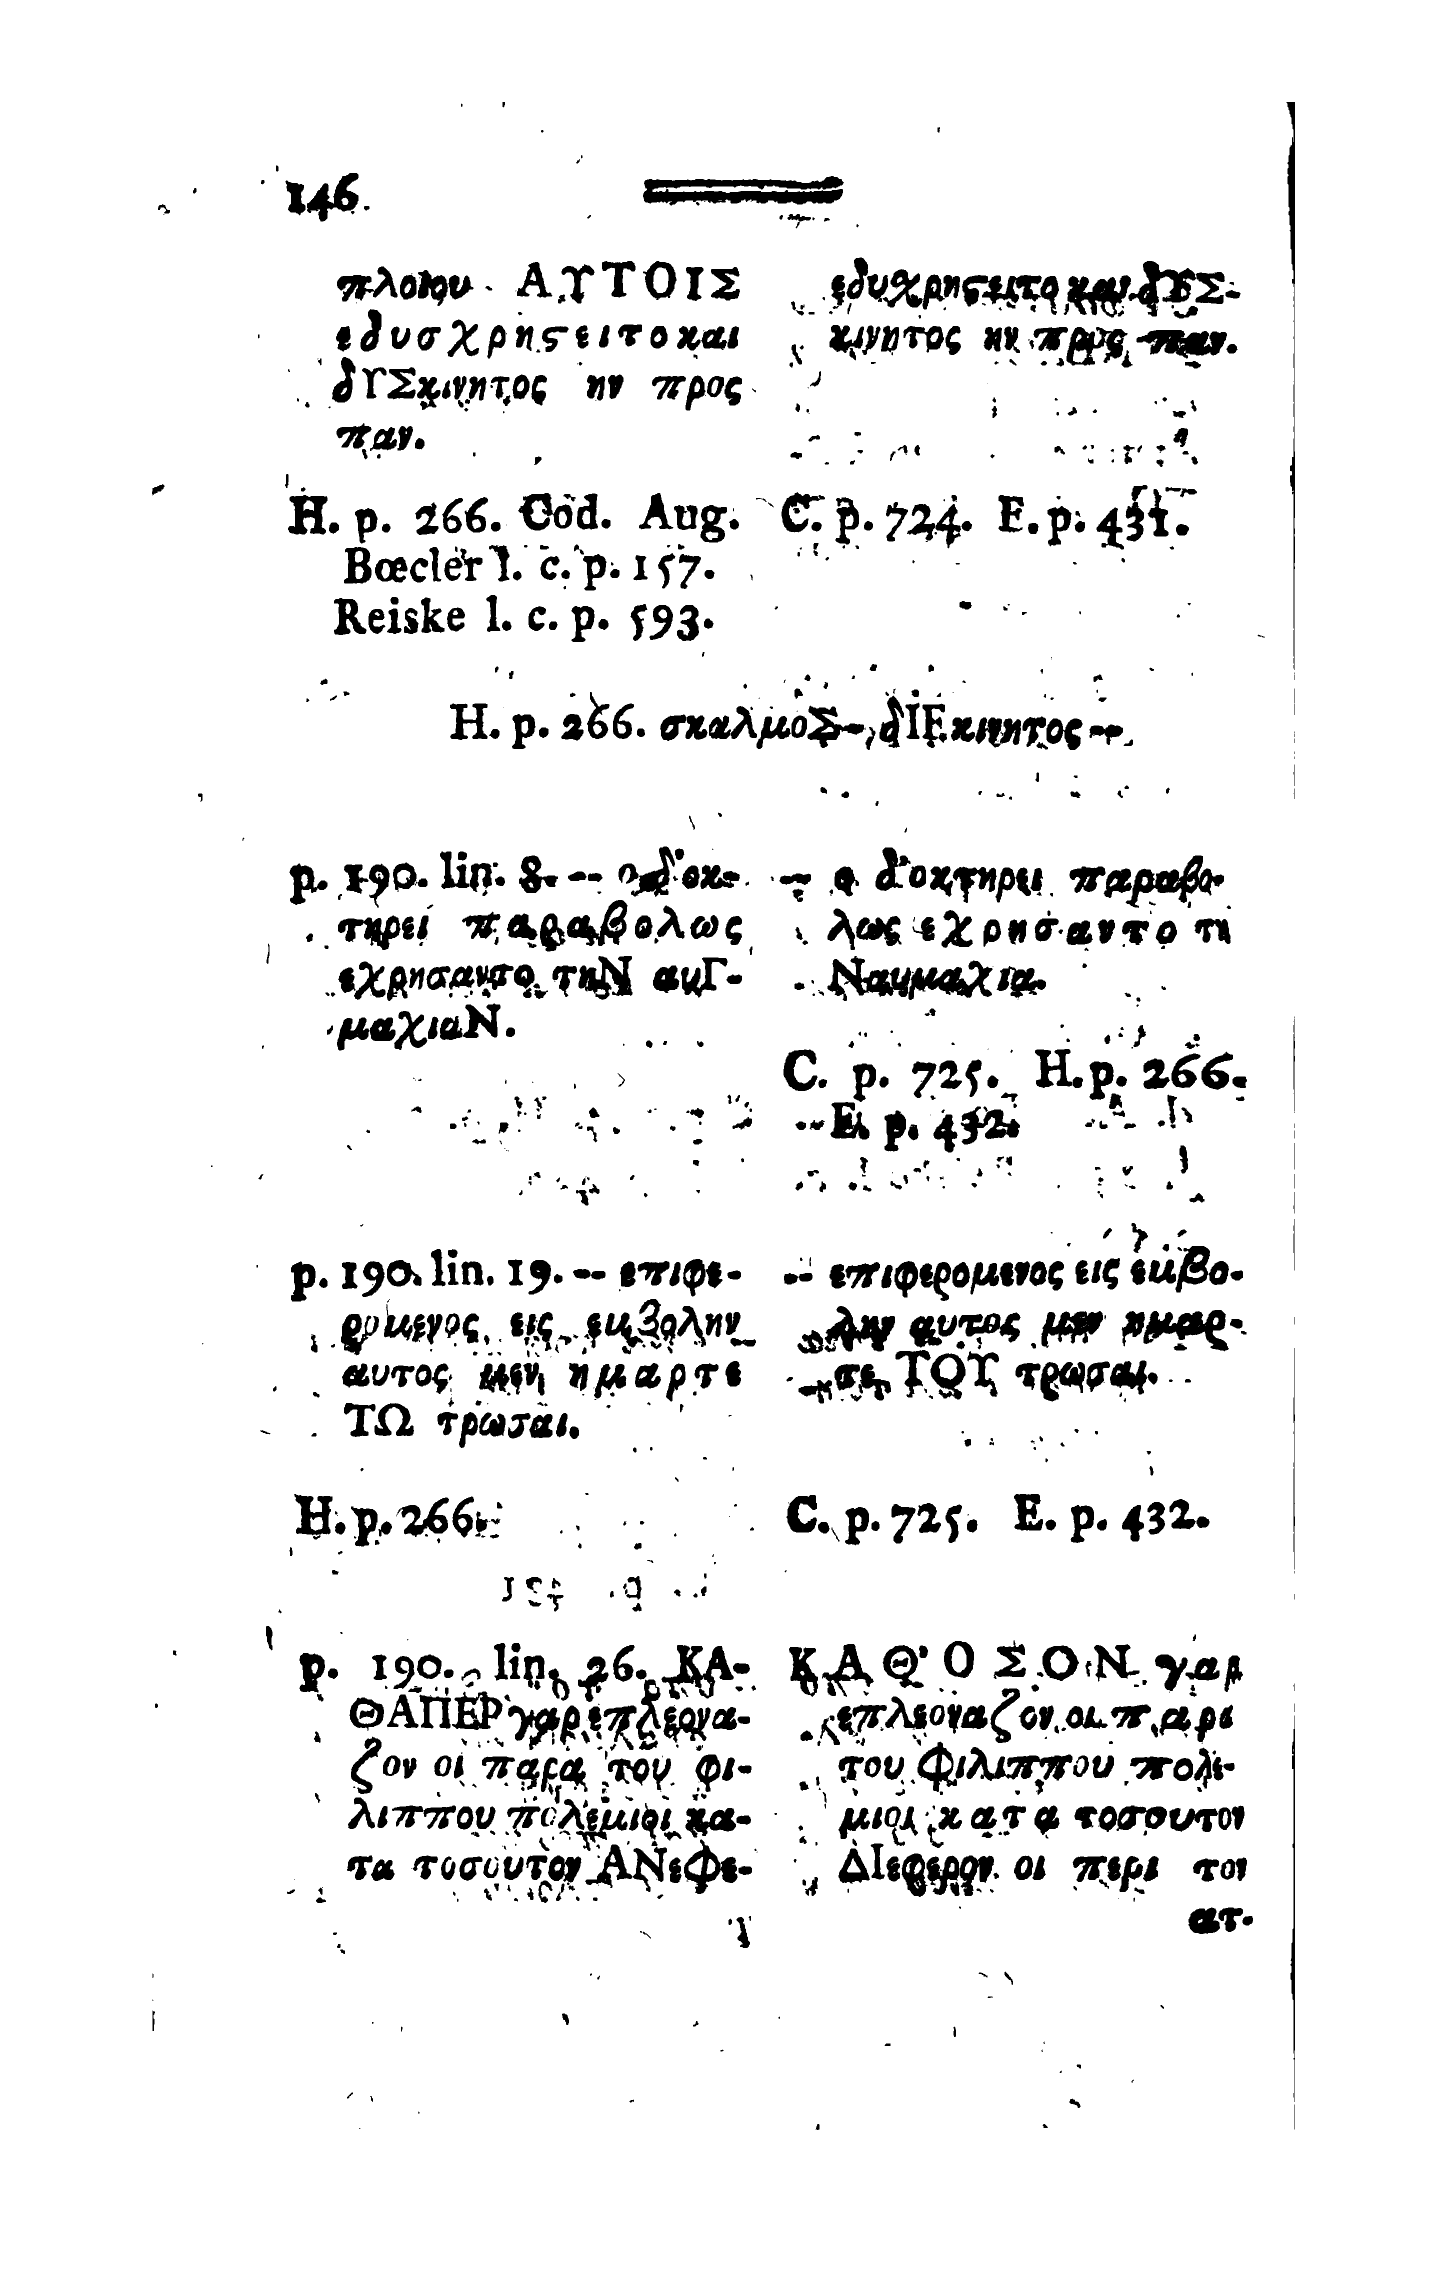 146
πλοιου ΑΥΤΟΙΣ
εδυσχρηϛειτο και
δΥΣκινητος ην προς
παν.
εδυχρηϛειτο και δΥΣ-
κινητος ην προς παν.
H. p. 266. Cod. Aug.
Bœcler l. c. p. 157.
Reiske l. c. p. 593.
C. p. 724. E. p. 431.
H. p. 266. σκαλμοΣ -- δΙΕκινητος --
p. 190. lin. 8. -- ο δ'οκ-
τηρει παραβολως
εχρησαντο τηΝ αυΓ-
μαχιαΝ.
-- ο δ'οκτηρει παραβο-
λως εχρησαντο τη
Ναυμαχια.
C. p. 725. H. p. 266.
E. p. 432.
p. 190. lin. 19. -- επιφε-
ρομενος εις εμβολην
αυτος μεν ημαρτε
ΤΩ τρωσαι.
-- επιφερομενος εις εμβο-
λην αυτος μεν ημαρ-
τε ΤΟΥ τρωσαι.
H. p. 266.
C. p. 725. E. p. 432.
p. 190. lin. 26. ΚΑ-
ΘΑΠΕΡ γαρ επλεονα-
ζον οι παρα του φι-
λιππου πολεμιοι κα-
τα τοσουτον ΑΝεφε-
ΚΑΘ'ΟΣΟΝ γαρ
επλεοναζον οι παρα
του Φιλιππου πολε-
μιοι κατα τοσουτον
ΔΙεφερον οι περι τον
ατ-